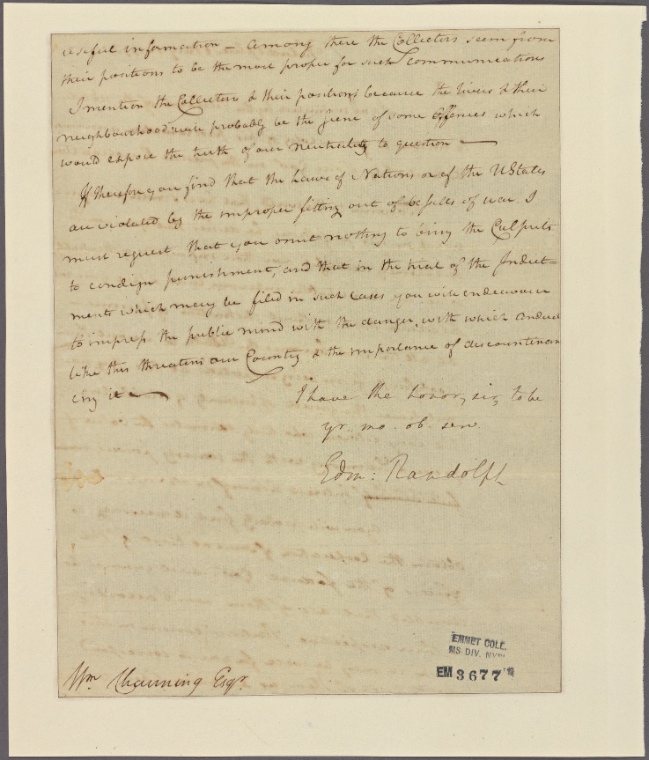 useful information – Among these the Collectors seem from
their positions to be the most proper for such communications
I mention the Collectors & their positions because the rivers & their
neighbourhood will probably be the scene of some offences which
would expose the truth of our neutrality to question –
If therefore you find that the Laws of Nations or of the U States
are violated by the improper fitting out of vessels of war I
must request that you omit nothing to bring the Culprits
to condign punishment, and that in the trial of the Indict-
ments which may be filed in such cases you will endeavour
to impress the public mind with the danger, with which
like this threatens our Country & the importance of discountenan
cing it –
I have the honor, sir, to be
yr. mo. ob. serv.
Edm: Randolph
EMMET COLL.
MS. DIV.
EM 3677
Wm. Channing Esqr.